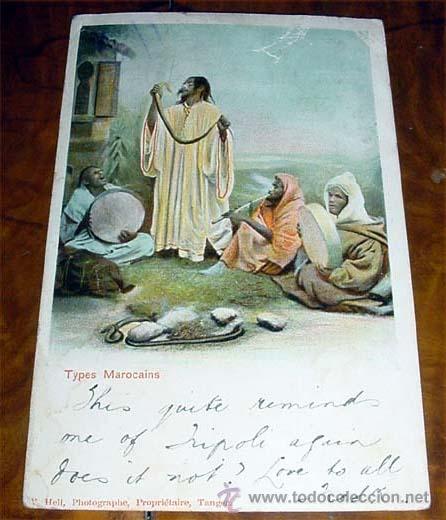 Types Marocains
This quite reminds
one of Tripoli again
does it not? Love to all
Hell, Photographe, Propriétaire, Tanger
todocoleccion
www.todocoleccion.net